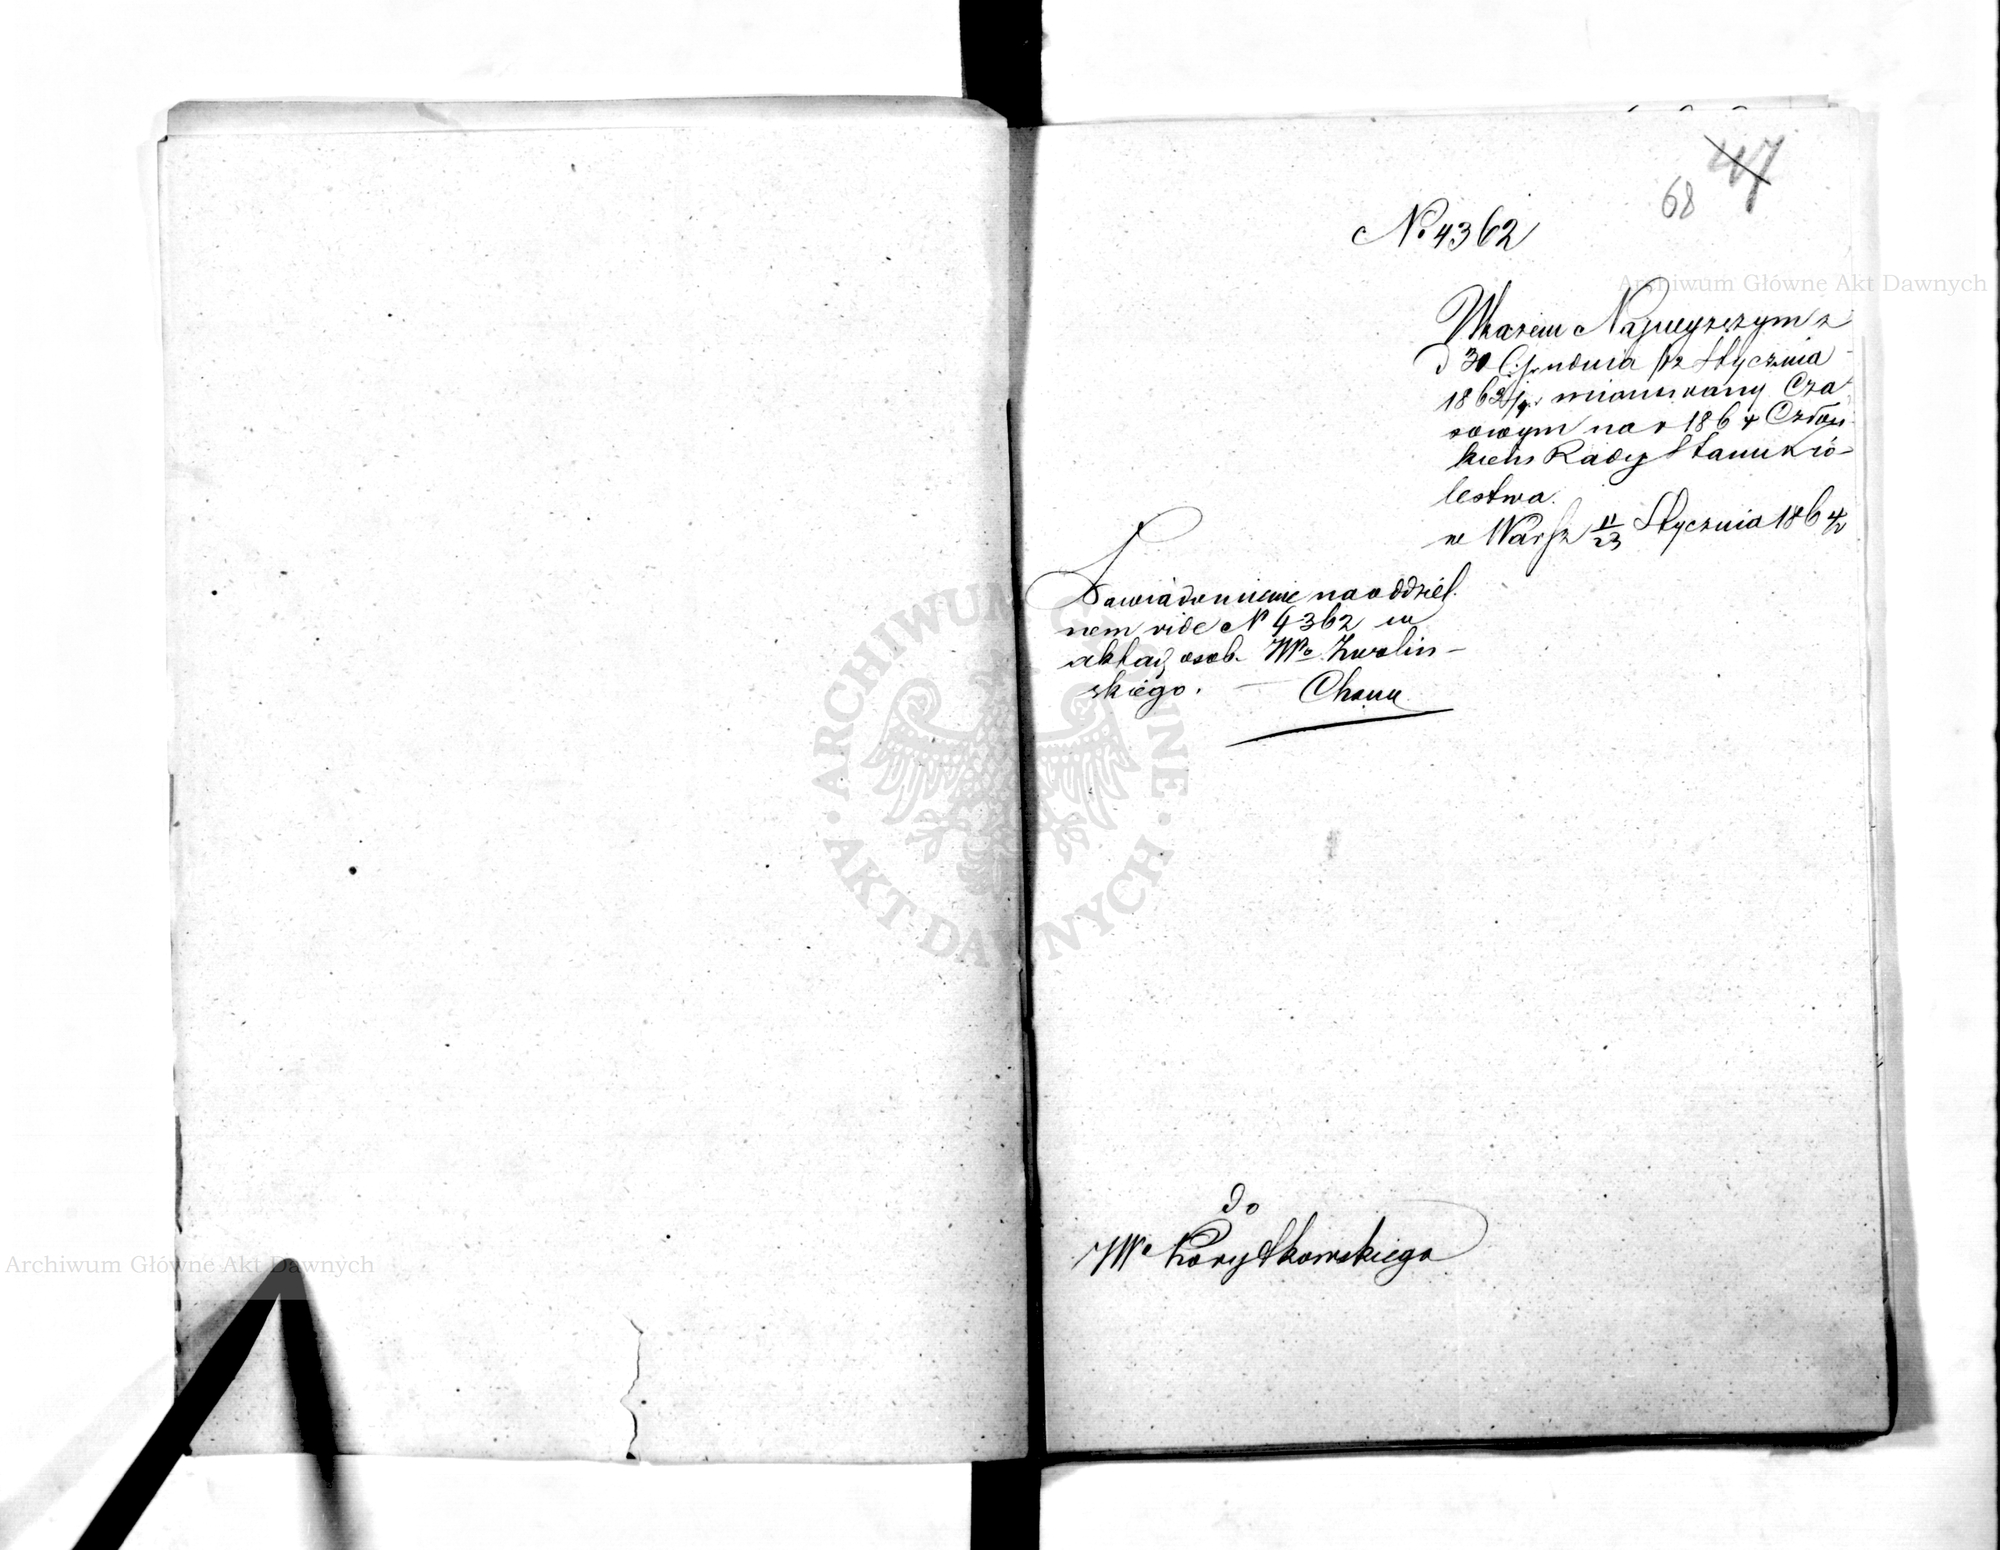 47
68
№ 4362
Archiwum Główne Akt Dawnych
Ukazem Najwyższym z
d 30 Grudnia /12 Stycznia
1863/4 r mianowany Cza-
sowym na r 1864 Człon-
kiem Rady Stanu Kró-
lestwa.
w Warsz 11/23 Stycznia 1864 r
Zawiadomienie na oddziel-
nem vide № 4362 w
aktach osob. JWo Zwolin-
skiego.
do
JWo Korytkowskiego
ARCHIWUM GŁÓWNE AKT DAWNYCH
Archiwum Główne Akt Dawnych